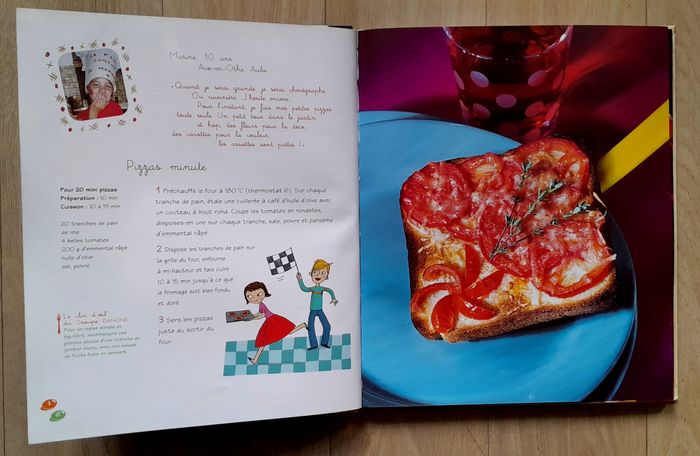 Marine, 10 ans
Aix-en-Othe, Aube
«Quand je serai grande je serai chorégraphe.
Ou cuisinière. J'hésite encore.
Pour l'instant, je fais mes petites pizzas
toute seule. Un petit tour dans le jardin
et hop, des fleurs pour la déco,
des carottes pour la couleur,
les assiettes sont prêtes !»
Pizzas minute
Pour 20 mini pizzas
Préparation : 10 min
Cuisson : 10 à 15 min
20 tranches de pain
de mie
4 belles tomates
200 g d'emmental râpé
huile d'olive
sel, poivre
1 Préchauffe le four à 180°C (thermostat 6). Sur chaque
tranche de pain, étale une cuillerée à café d'huile d'olive avec
un couteau à bout rond. Coupe les tomates en rondelles,
disposes-en une sur chaque tranche, sale, poivre et parsème
d'emmental râpé.
2 Dispose les tranches de pain sur
la grille du four, enfourne
à mi-hauteur et fais cuire
10 à 15 min jusqu'à ce que
le fromage soit bien fondu
et doré.
3 Sers les pizzas
juste au sortir du
four.
Le clin d'œil
du Groupe DANONE
Pour un repas simple et
équilibré, accompagne ces
petites pizzas d'une tranche de
jambon blanc, avec une salade
de fruits frais en dessert.